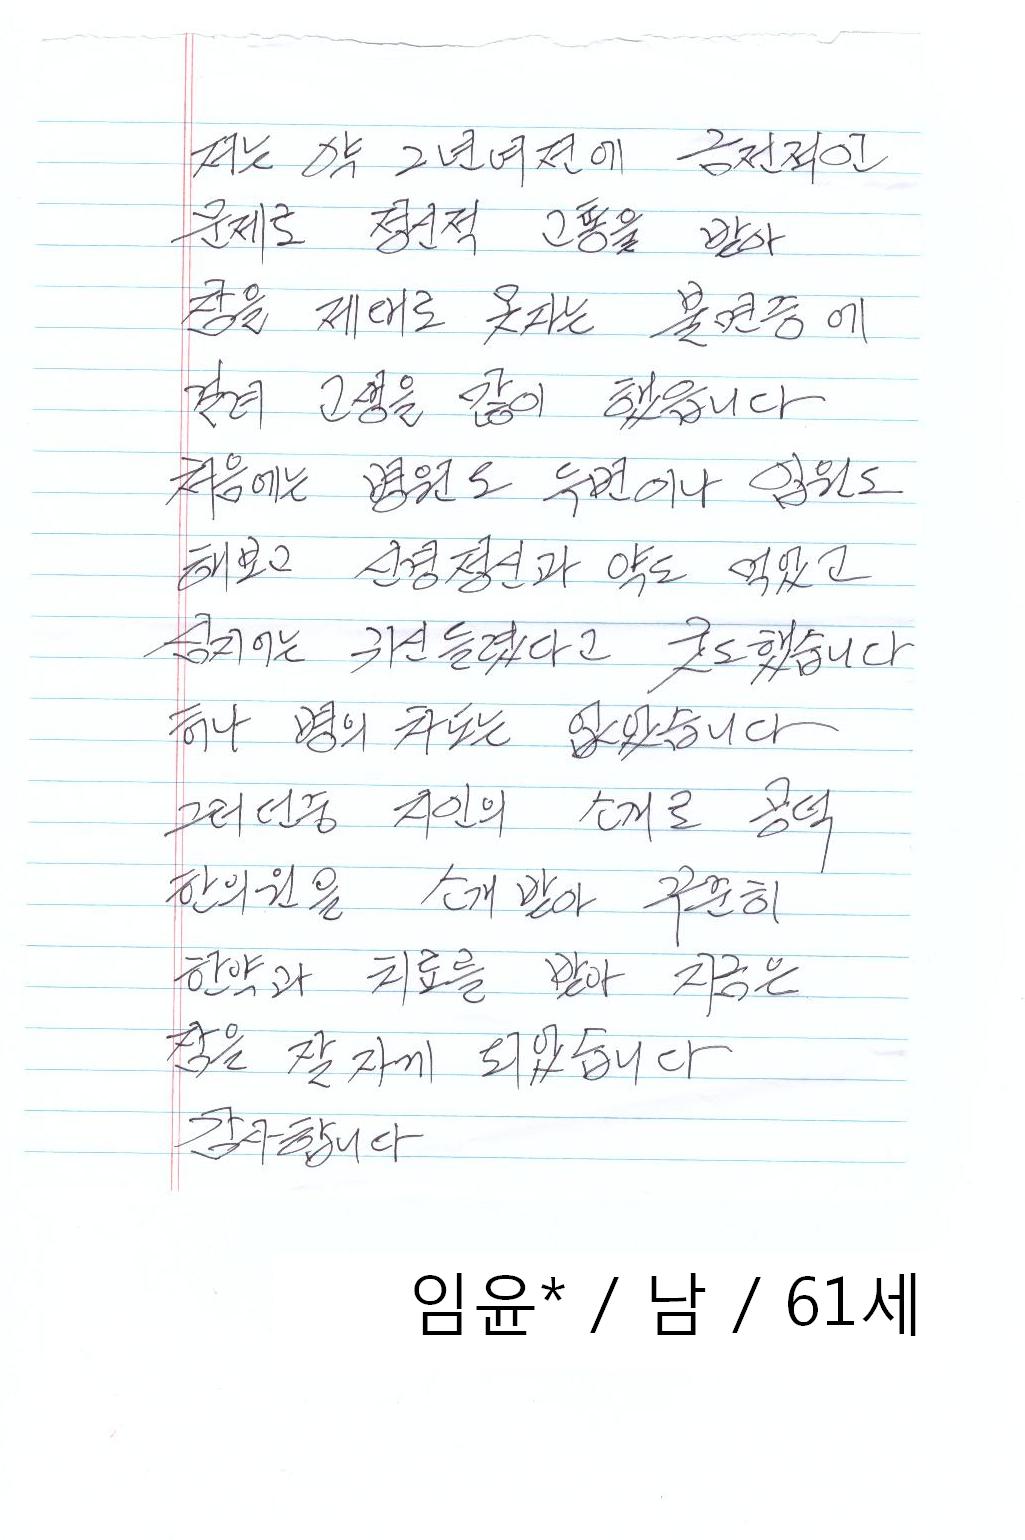 저는 약 2년여전에 금전적인
문제로 정신적 고통을 받아
잠을 제대로 못자는 불면증에
걸려 고생을 많이 했읍니다
처음에는 병원도 두번이나 입원도
해보고 신경정신과 약도 먹었고
심지어는 귀신들렸다고 굿도했습니다
허나 병의 차도는 없었습니다
그러던중 지인의 소개로 공덕
한의원을 소개받아 꾸준히
한약과 치료를 받아 지금은
잠을 잘자게 되었습니다
감사합니다
임윤* / 남 / 61세